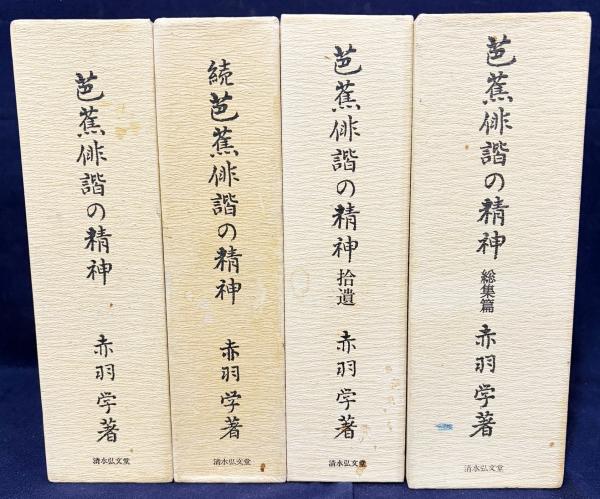 芭蕉俳諧の精神
赤羽学著
清水弘文堂
続芭蕉俳諧の精神
赤羽学著
清水弘文堂
芭蕉俳諧の精神
拾遺
赤羽学著
清水弘文堂
芭蕉俳諧の精神
総集篇
赤羽学著
清水弘文堂